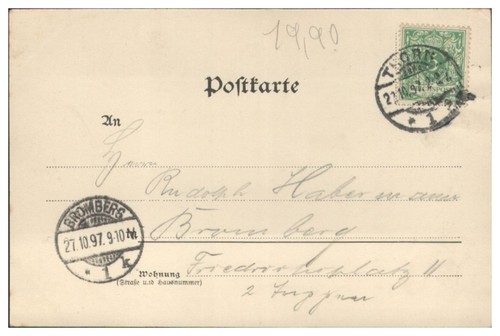 19,90
Postkarte
THORN
27.10.97.
* 1
An
Herrn
Rudolph Habermann
Bromberg
Friedrichsplatz 11
2 Treppen
BROMBERG
27.10.97.9-10N.
* 1 k
Wohnung
(Straße und Hausnummer)